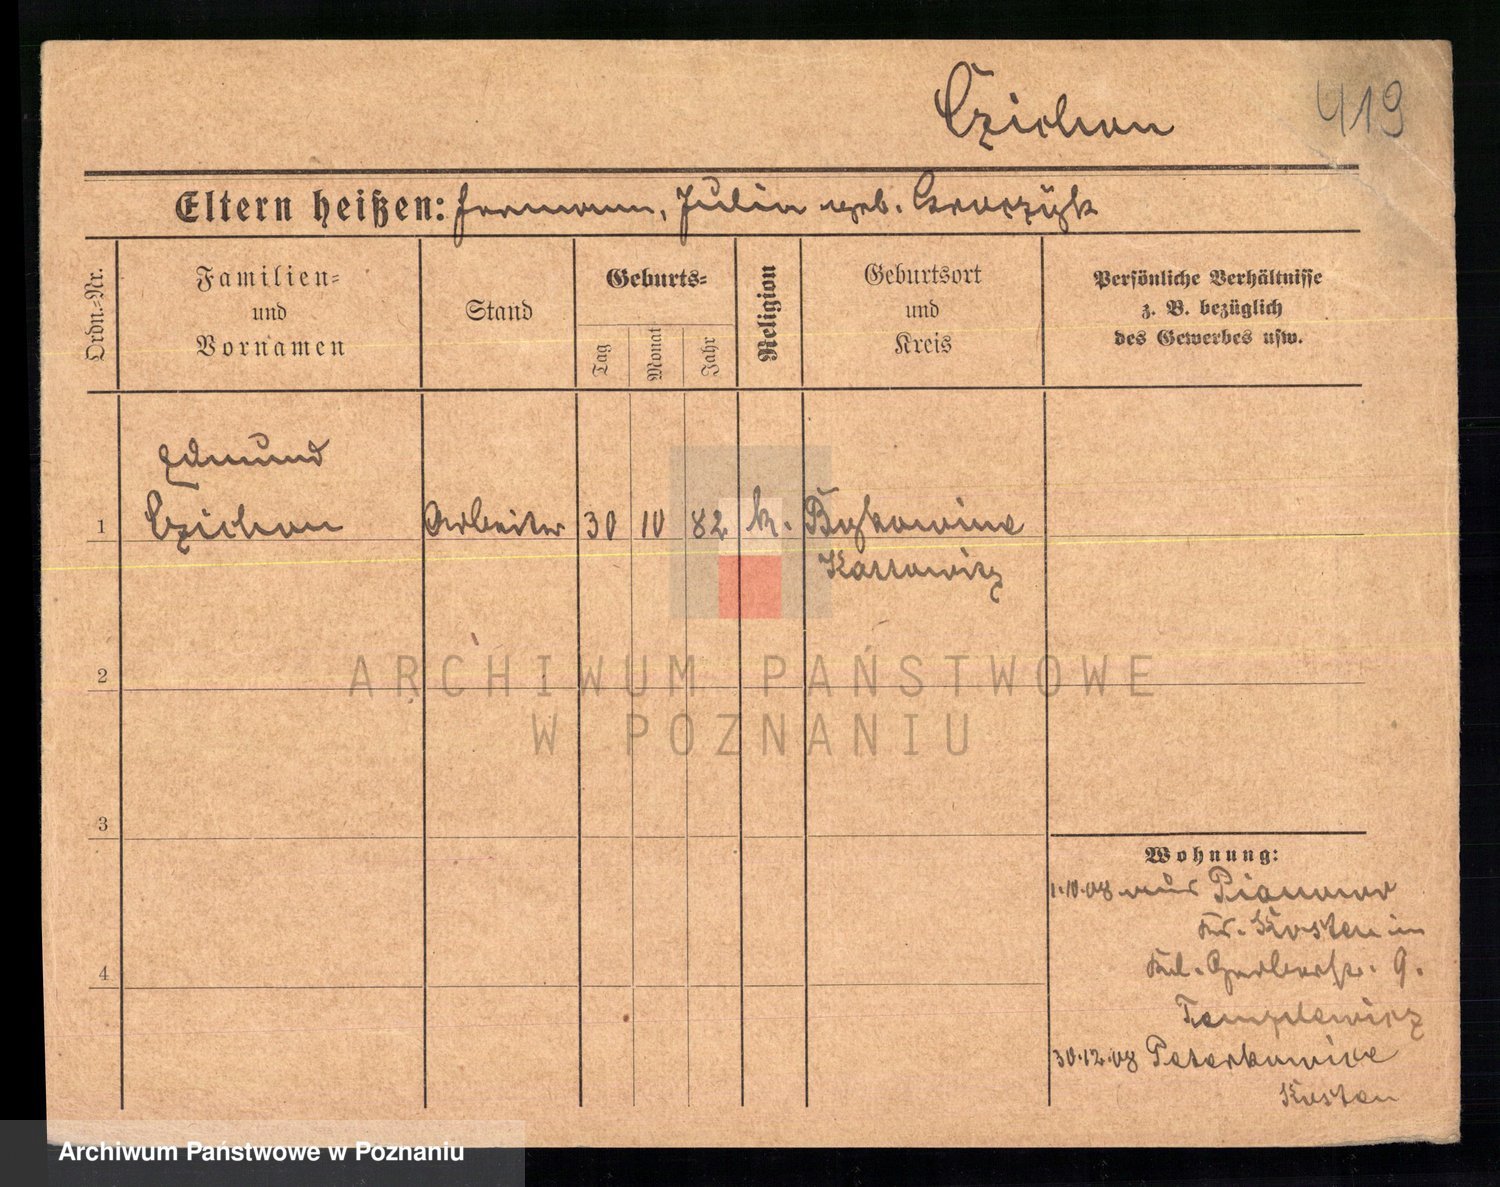 Czichon
419
Eltern heißen: Hermann, Julia geb.
Ordn.-Nr.
Familien-
und
Vornamen
Stand
Geburts-
Tag
Monat
Jahr
Religion
Geburtsort
und
Kreis
Persönliche Verhältnisse
z. B. bezüglich
des Gewerbes usw.
Edmund
1 Czichon Arbeiter 30 10 82 k. Bykowine
Kattowitz
2
ARCHIWUM PAŃSTWOWE
W POZNANIU
3
Wohnung:
1.10.08 aus
Kr. Kosten in
4
Kl. Gerberstr. 9.
30.12.08 Peterkowice
Kosten
Archiwum Państwowe w Poznaniu